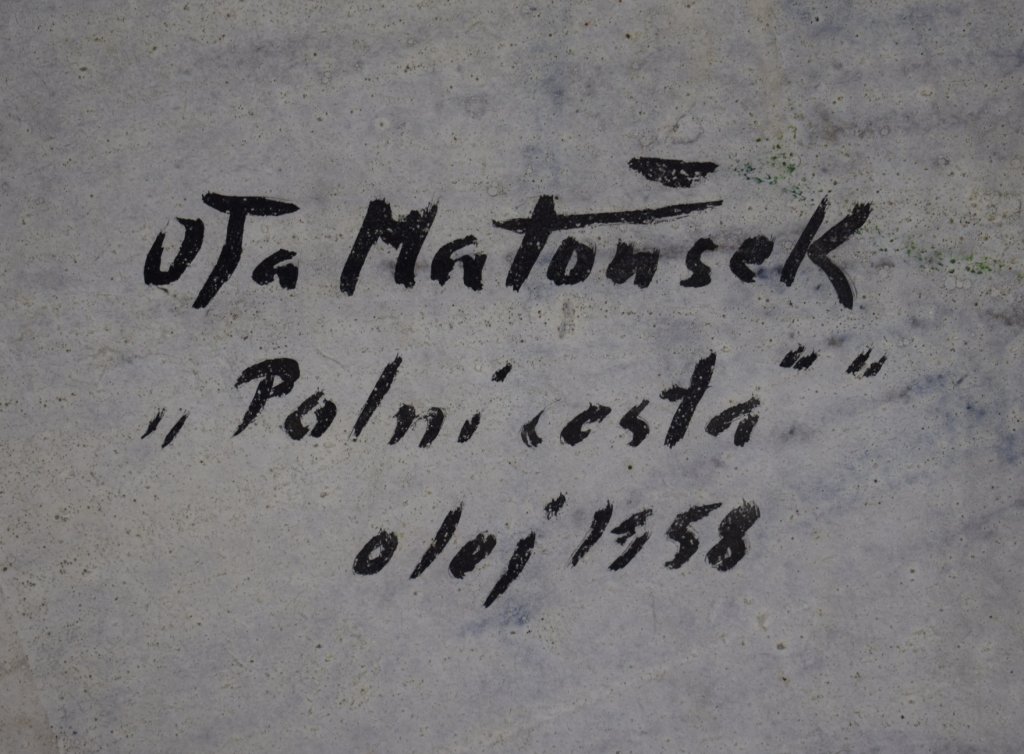 Ota Matoušek
„Polní cesta"
olej 1958